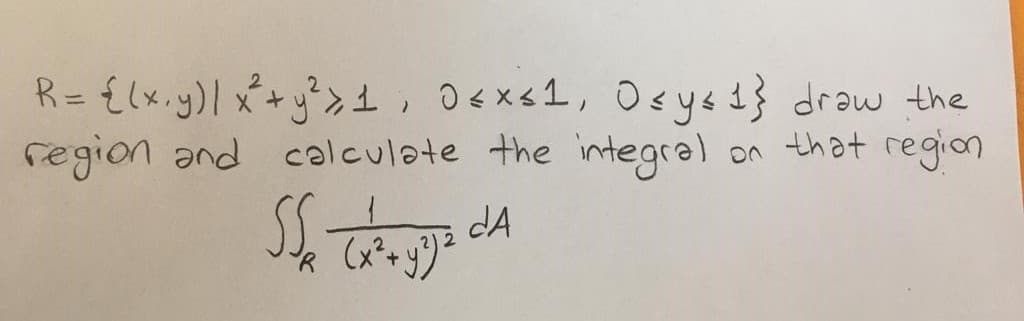 R = {(x,y)| x²+y²≥1, 0≤x≤1, 0≤y≤1} draw the
region and calculate the integral on that region
∬_R 1/(x²+y²)² dA